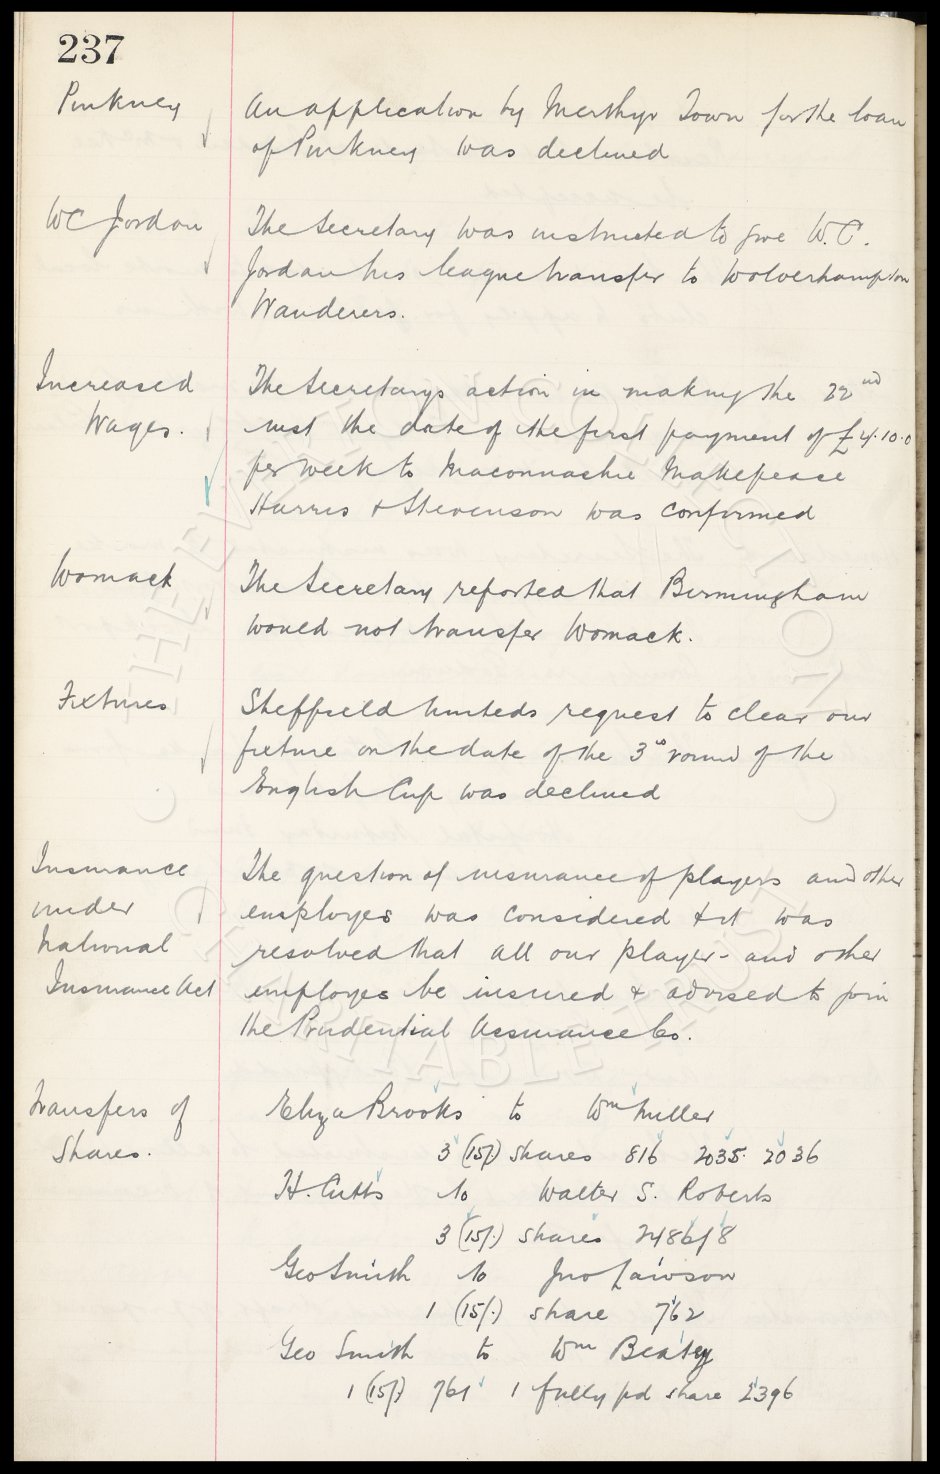 237
Pinkney
An application by Merthyr Town for the loan
of Pinkney was declined
W C Jordan
The Secretary was instructed to give W. C.
Jordan his league transfer to Wolverhampton
Wanderers.
Increased
Wages.
The Secretarys action in making the 22nd
inst the date of the first payment of £4.10.0
per week to Maconnachie Makepeace
Harris & Stevenson was confirmed
Womack
The Secretary reported that Birmingham
would not transfer Womack.
Fixtures
Sheffield Uniteds request to clear our
fixture on the date of the 3rd round of the
English Cup was declined
Insurance
under
National
Insurance Act
The question of insurance of players and other
employes was considered & it was
resolved that all our players and other
employes be insured & advised to join
the Prudential Assurance Co.
Transfers of
Shares.
Eliza Brooks to Wm Miller
3 (15/-) shares 816 2035. 2036
H. Cutts to Walter S. Roberts
3 (15/-) shares 2486/8
Geo Smith to Jno Lawson
1 (15/-) share 762
Geo Smith to Wm Beatey
1 (15/-) 761 1 fully pd share 2396
THE EVERTON COLLECTION
CHARITABLE TRUST